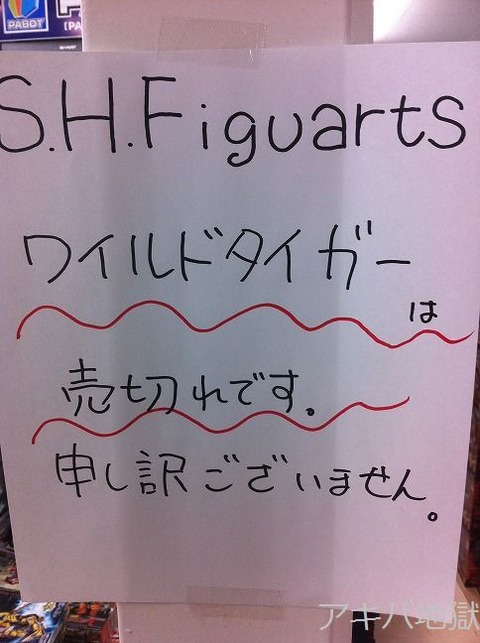 PABOT
S.H.Figuarts
ワイルドタイガー
は
売切れです。
申し訳ございません。
アキバ地獄